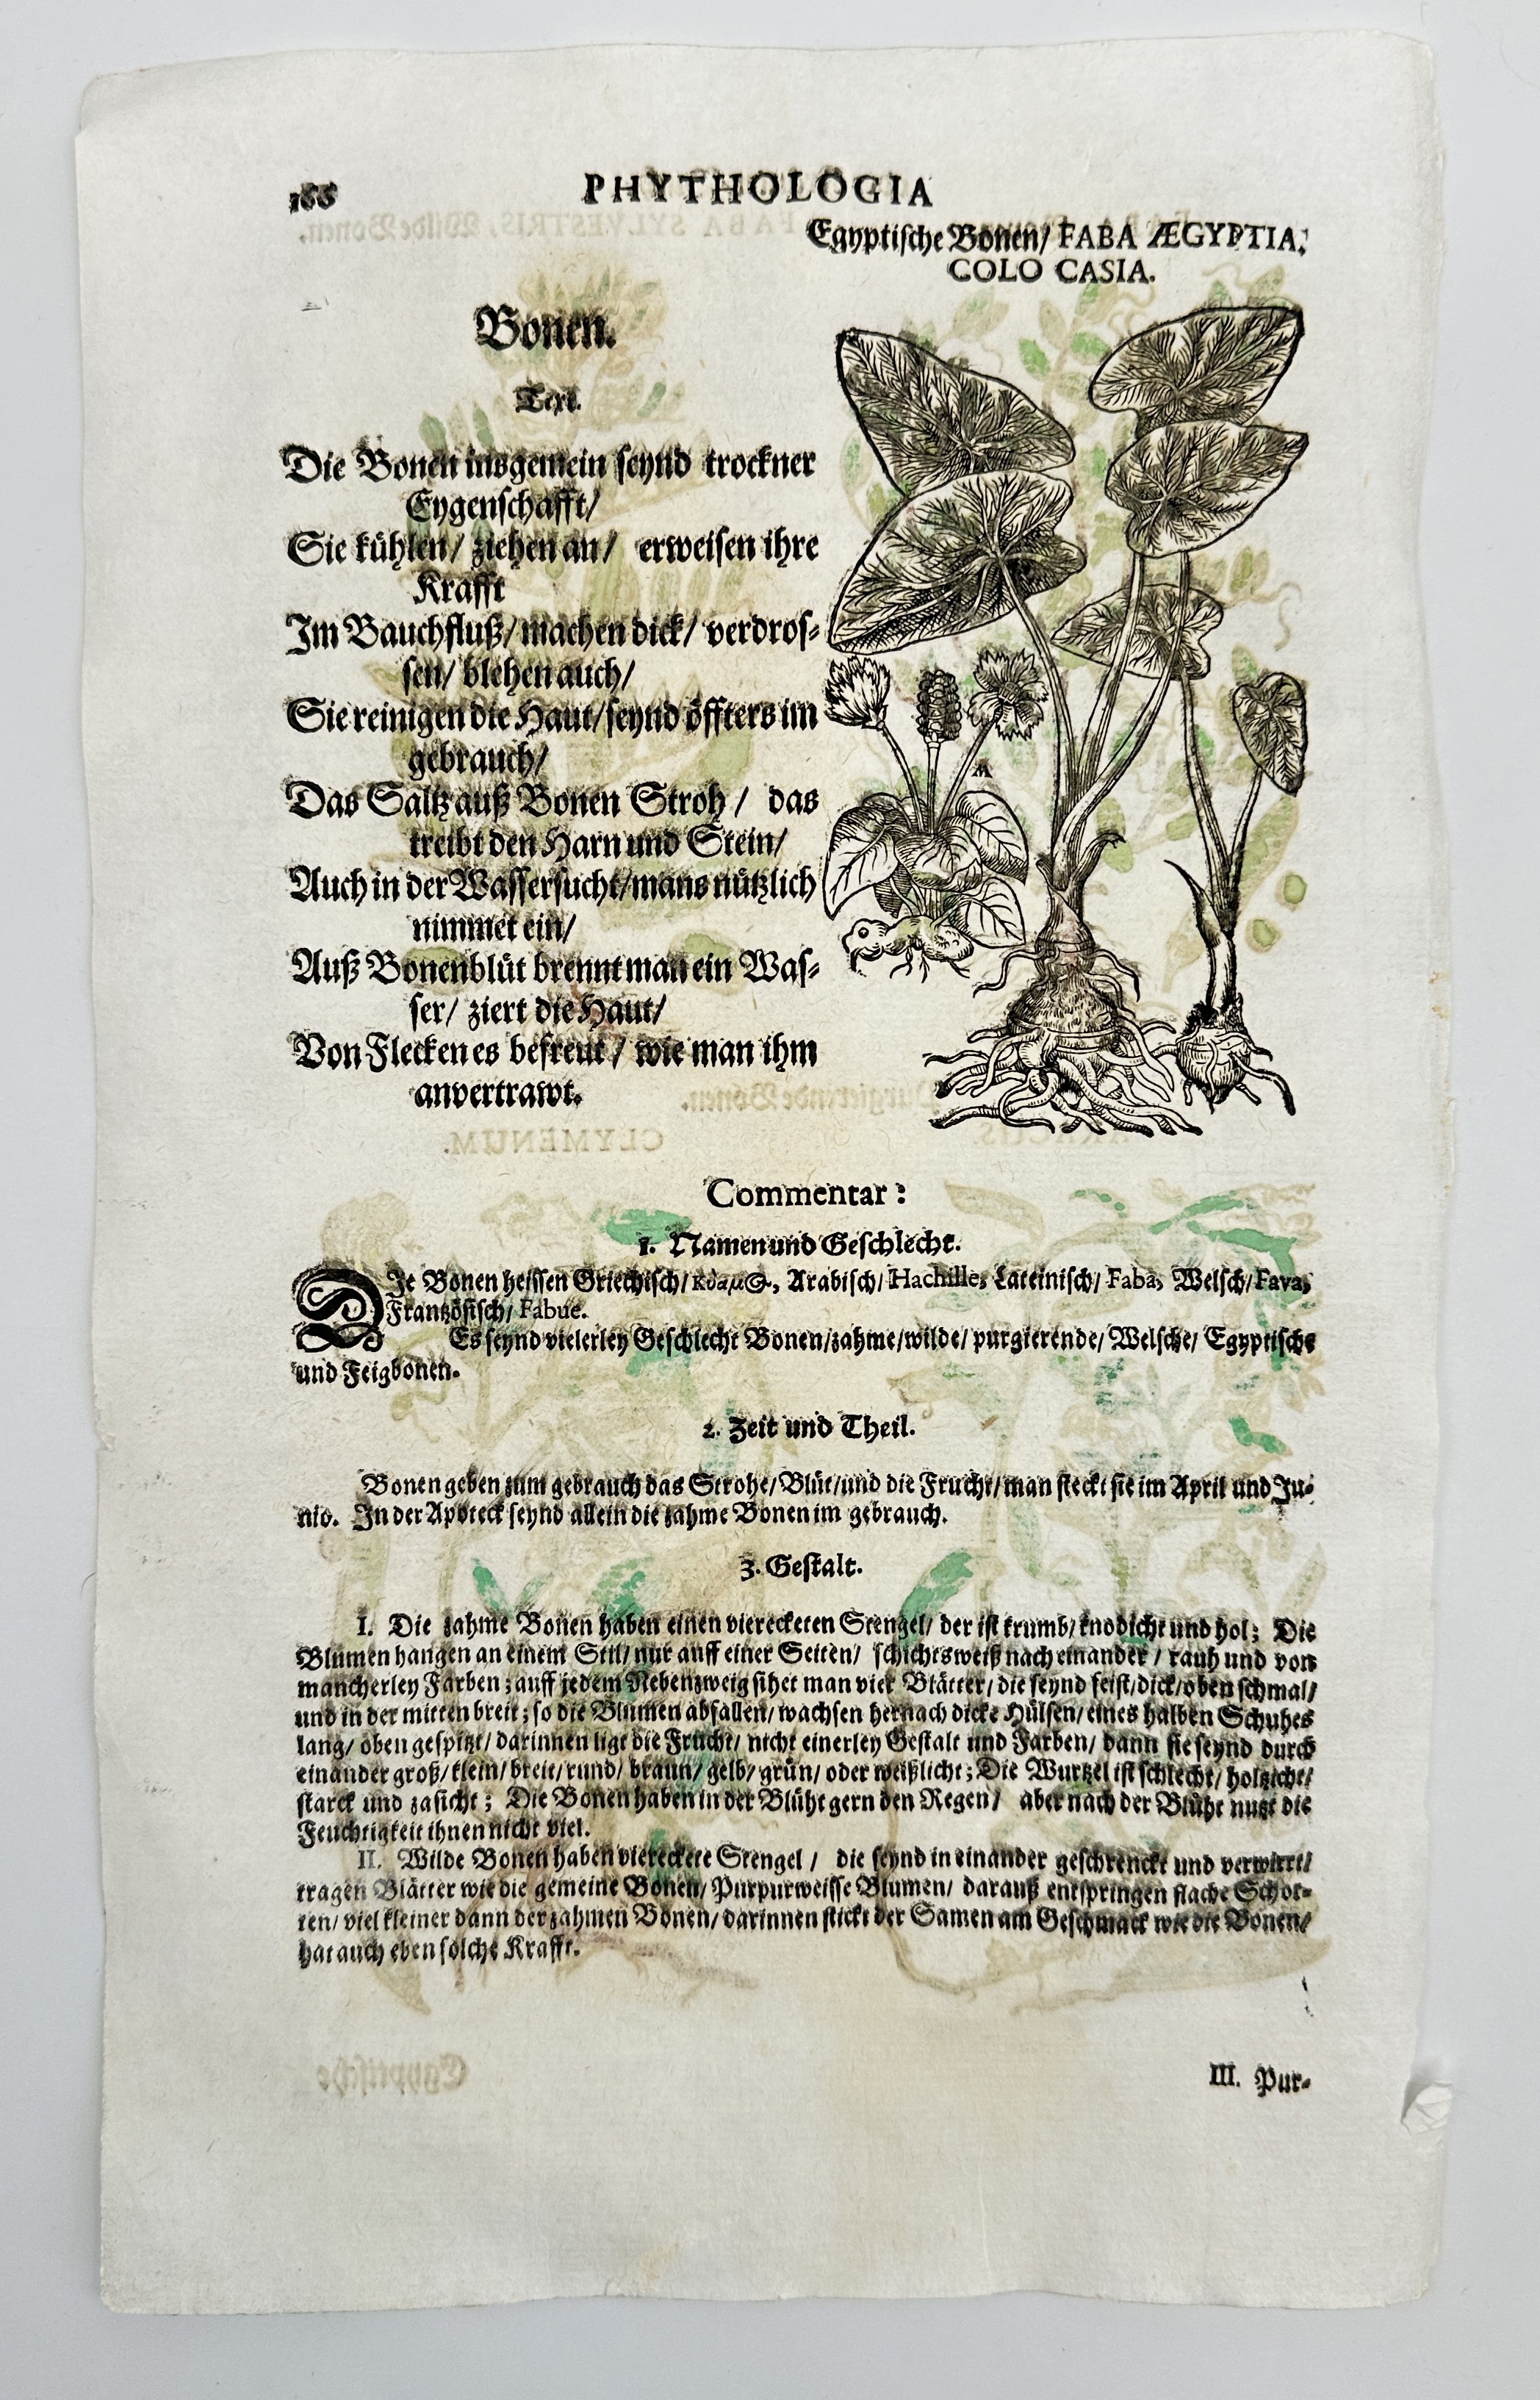 PHYTHOLOGIA
Egyptische Bonen/ FABA ÆGYPTIA,
COLO CASIA.
Bonen.
Text.
Die Bonen insgemein seynd trockner
Eygenschafft/
Sie kühlen/ ziehen an/ erweisen ihre
Krafft
Im Bauchfluß/ machen dick/ verdros-
sen/ blehen auch/
Sie reinigen die Haut/ seynd öffters im
gebrauch/
Das Saltz auß Bonen Stroh/ das
treibt den Harn und Stein/
Auch in der Wassersucht/ mans nützlich
nimmet ein/
Auß Bonenblüt brennt man ein Was-
ser/ ziert die Haut/
Von Flecken es befreut/ wie man ihm
anvertrawt.
Commentar:
1. Namen und Geschlecht.
DIe Bonen heissen Griechisch/ Arabisch/ Hachille, Lateinisch/ Faba, Welsch/ Fava,
Frantzösisch/ Fabue.
Es seynd vielerley Geschlecht Bonen/ zahme/ wilde/ purgierende/ Welsche/ Egyptische
und Feigbonen.
2. Zeit und Theil.
Bonen geben zum gebrauch das Strohe/ Blüt/ und die Frucht/ man steckt sie im April und Ju-
nio. In der Apoteck seynd allein die zahme Bonen im gebrauch.
3. Gestalt.
I. Die zahme Bonen haben einen viereckten Stengel/ der ist krumb/ knodicht und hol; Die
Blumen hangen an einem Stil/ nur auff einer Seiten/ schichtsweiß nach einander/ rauh und von
mancherley Farben; auff jedem Nebenzweig sihet man vier Blätter/ die seynd feist/ dick/ oben schmal/
und in der mitten breit; so die Blumen abfallen/ wachsen hernach dicke Hülsen/ eines halben Schuhes
lang/ oben gespitzt/ darinnen ligt die Frucht/ nicht einerley Gestalt und Farben/ dann sie seynd durch
einander groß/ klein/ breit/ rund/ braun/ gelb/ grün/ oder weißlicht; Die Wurtzel ist schlecht/ holtzicht/
starck und zasicht; Die Bonen haben in der Blüht gern den Regen/ aber nach der Blüht nutzt die
Feuchtigkeit ihnen nicht viel.
II. Wilde Bonen haben viereckete Stengel/ die seynd in einander geschrenckt und verwirrt/
tragen Blätter wie die gemeine Bonen/ Purpurweisse Blumen/ darauß entspringen flache Schot-
ten/ viel kleiner dann der zahmen Bonen/ darinnen stickt der Samen am Geschmack wie die Bonen/
hat auch eben solche Krafft.
III. Pur-